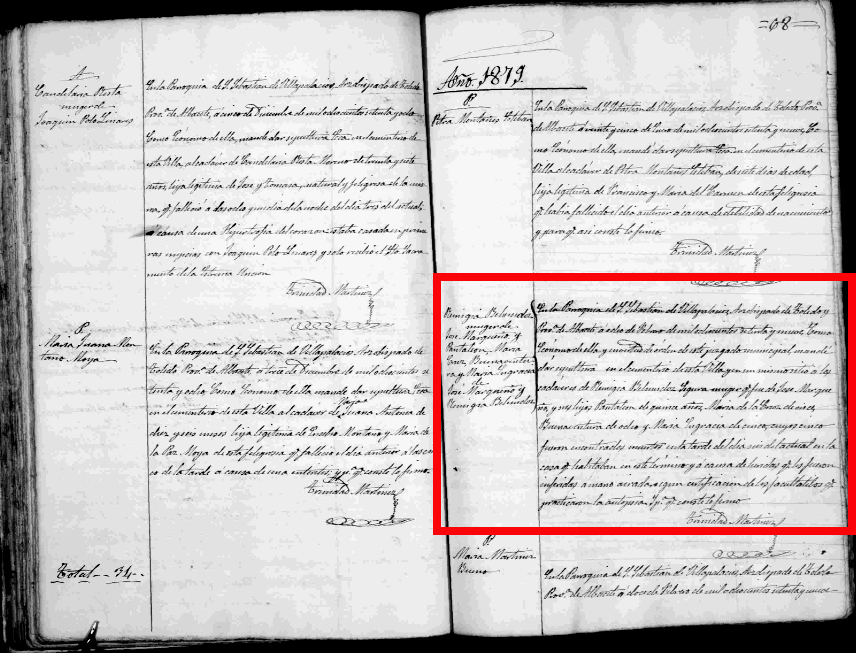 A
Candelaria Resta
muger de
Joaquin Polo Linares
En la Parroquia de S. Sebastian de Villapalacios, Arzobispado de Toledo
Prov.ª de Albacete, a cinco de Diciembre de mil ochocientos setenta y ocho
Como Ecónomo de ella, mandé dar sepultura Ecca en el cementerio de
esta Villa, al cadaver de Candelaria Resta de treinta y siete
años, hija legitima de Jose y natural y feligresa de la mis-
ma, q.e falleció a las ocho y media de la noche del dia tres del actual
a causa de una Hipertrofia del corazon: estaba casada en prime
ras nupcias con Joaquin Polo Linares y solo recibió el Sto Sacra
mento de la Extrema Uncion
Trinidad Martinez
P
Maria Juana Mon-
tano Moya
En la Parroquia de S. Sebastian de Villapalacios Arzobispado de
Toledo Prov.ª de Albacete, a trece de Diciembre de mil ochocientos se
tenta y ocho, Como Ecónomo de ella mandé dar sepultura Ecca
en el cementerio de esta Villa al cadaver de Juana Antonia de
diez y seis meses hija legitima de Eusebio Montano y Maria de
la Paz Moya de esta feligresia q.e falleció el dia anterior a las cin
co de la tarde a causa de una y p.ª q.e conste lo firmo.
Trinidad Martinez
Total - - 34 - -
=68=
Año. 1879.
P
Petra Montañes Esteban
En la Parroquia de S. Sebastian de Villapalacios, Arzobispado de Toledo Prov.
de Albacete a veinte y cinco de Enero de mil ochocientos setenta y nueve, Co
mo Ecónomo de ella, mandé dar sepultura Ecca en el cementerio de esta
Villa al cadaver de Petra Montañes Esteban, de siete dias de edad
hija legitima de Francisco y Maria del Carmen de esta feligresia
q.e habia fallecido el dia anterior a causa de debilidad de nacimiento
y para q.e asi conste lo firmo.
Trinidad Martinez
Remigia Belmndez
muger de
Jose Marqueño, y
Pantaleon, Maria
Cruz, Buenaventu
ra y Maria Engracia
de
Jose Marqueño y
Remigia Belmndez
En la Parroquia de S. Sebastian de Villapalacios, Arzobispado de Toledo y
Prov.ª de Albacete a ocho de Febrero de mil ochocientos setenta y nueve, Como
Ecónomo de ella y en virtud de orden de este juzgado municipal, mandé
dar sepultura en el cementerio de esta Villa y en un mismo sitio a los
cadaveres de Remigia Belmndez Segura muger q.e fue de Jose Marque
ño, y sus hijos Pantaleon de quince años, Maria de la Cruz de once,
Buenaventura de ocho y Maria Engracia de cinco, cuyos cinco
fueron encontrados muertos en la tarde del dia seis del actual en la
casa q.e habitaban en este término y a causa de heridas q.e les fueron
inferidas a mano airada, segun certificacion de los facultatibos q.e
practicaron la autopsia. Y p.ª q.e conste lo firmo
Trinidad Martinez
P
Maria Martinez
Bueno
En la Parroquia de S. Sebastian de Villapalacios, Arzobispado de Toledo
Prov.ª de Albacete a doce de Febrero de mil ochocientos setenta y nueve